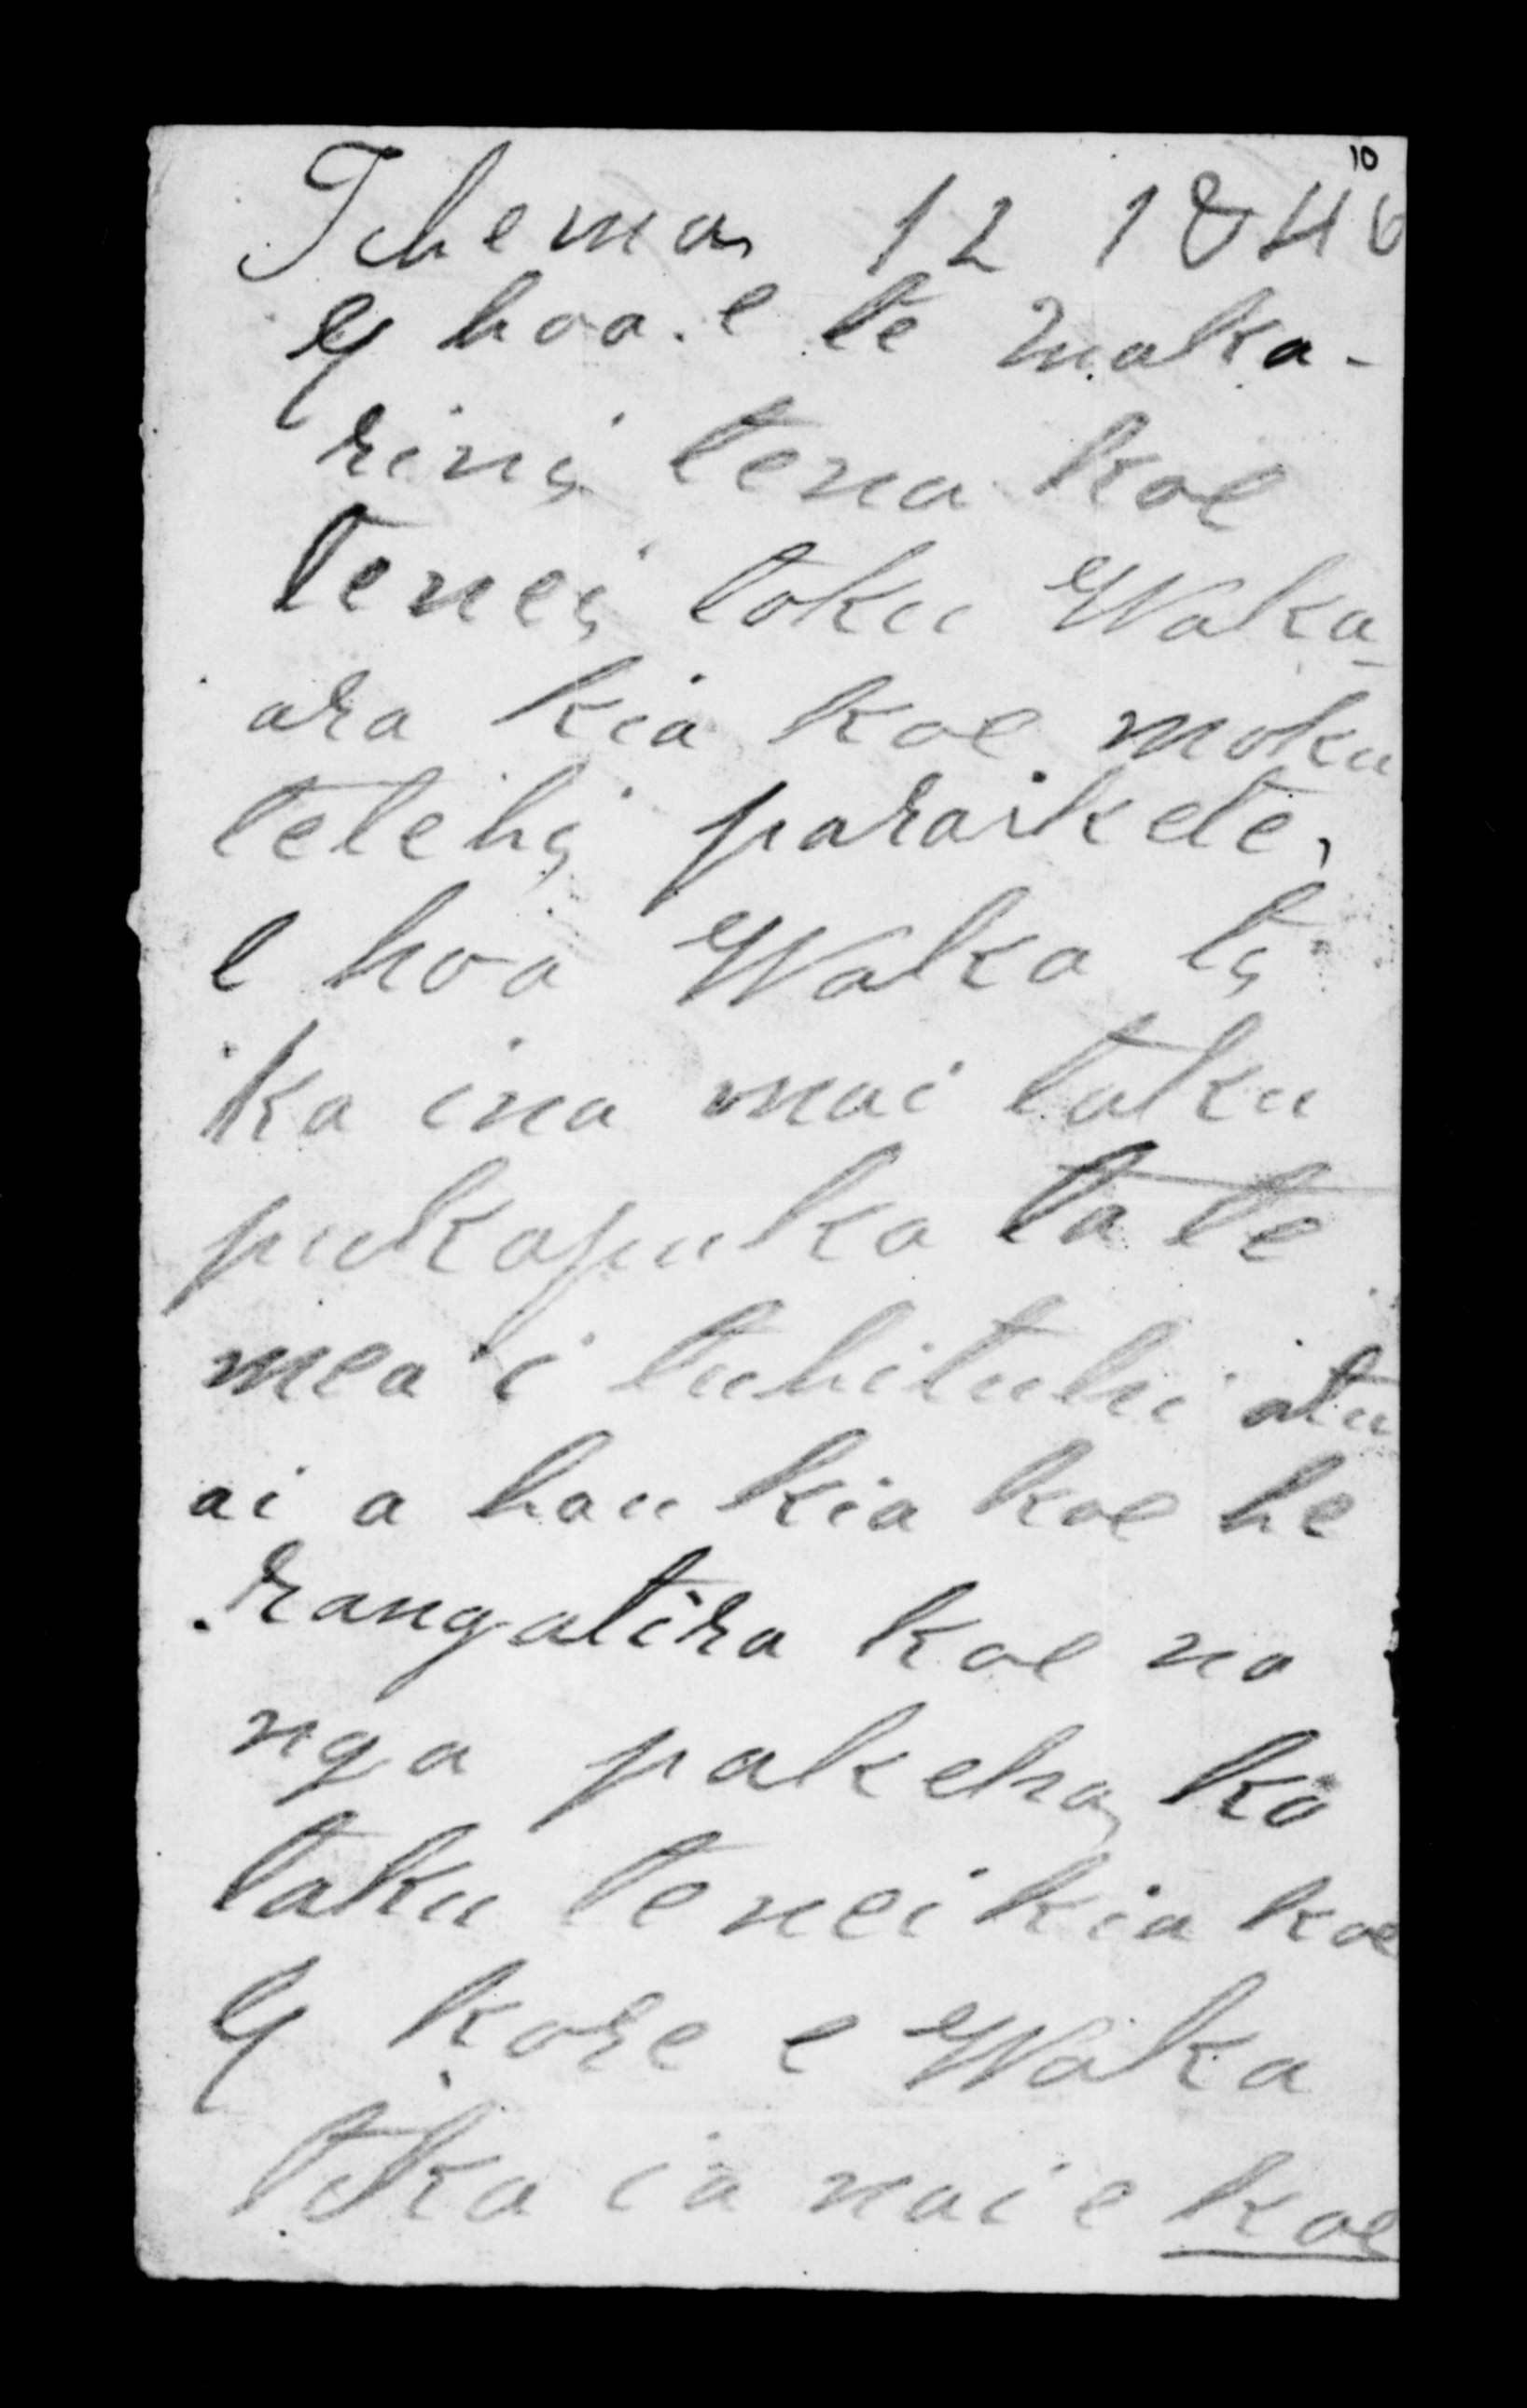 10
Tihema 12 1846
E hoa. e te maka-
rini tena koe
tenei toku Waka-
ara kia koe moku
tetehi paraikete,
e hoa Waka ti
ka ina mai taku
pukapuka ta te
mea i tuhituhi atu
ai a hau kia koe he
rangatira koe no
nga pakeha, ko
taku tenei kia koe
E kore e Waka
tika ia nai e koe